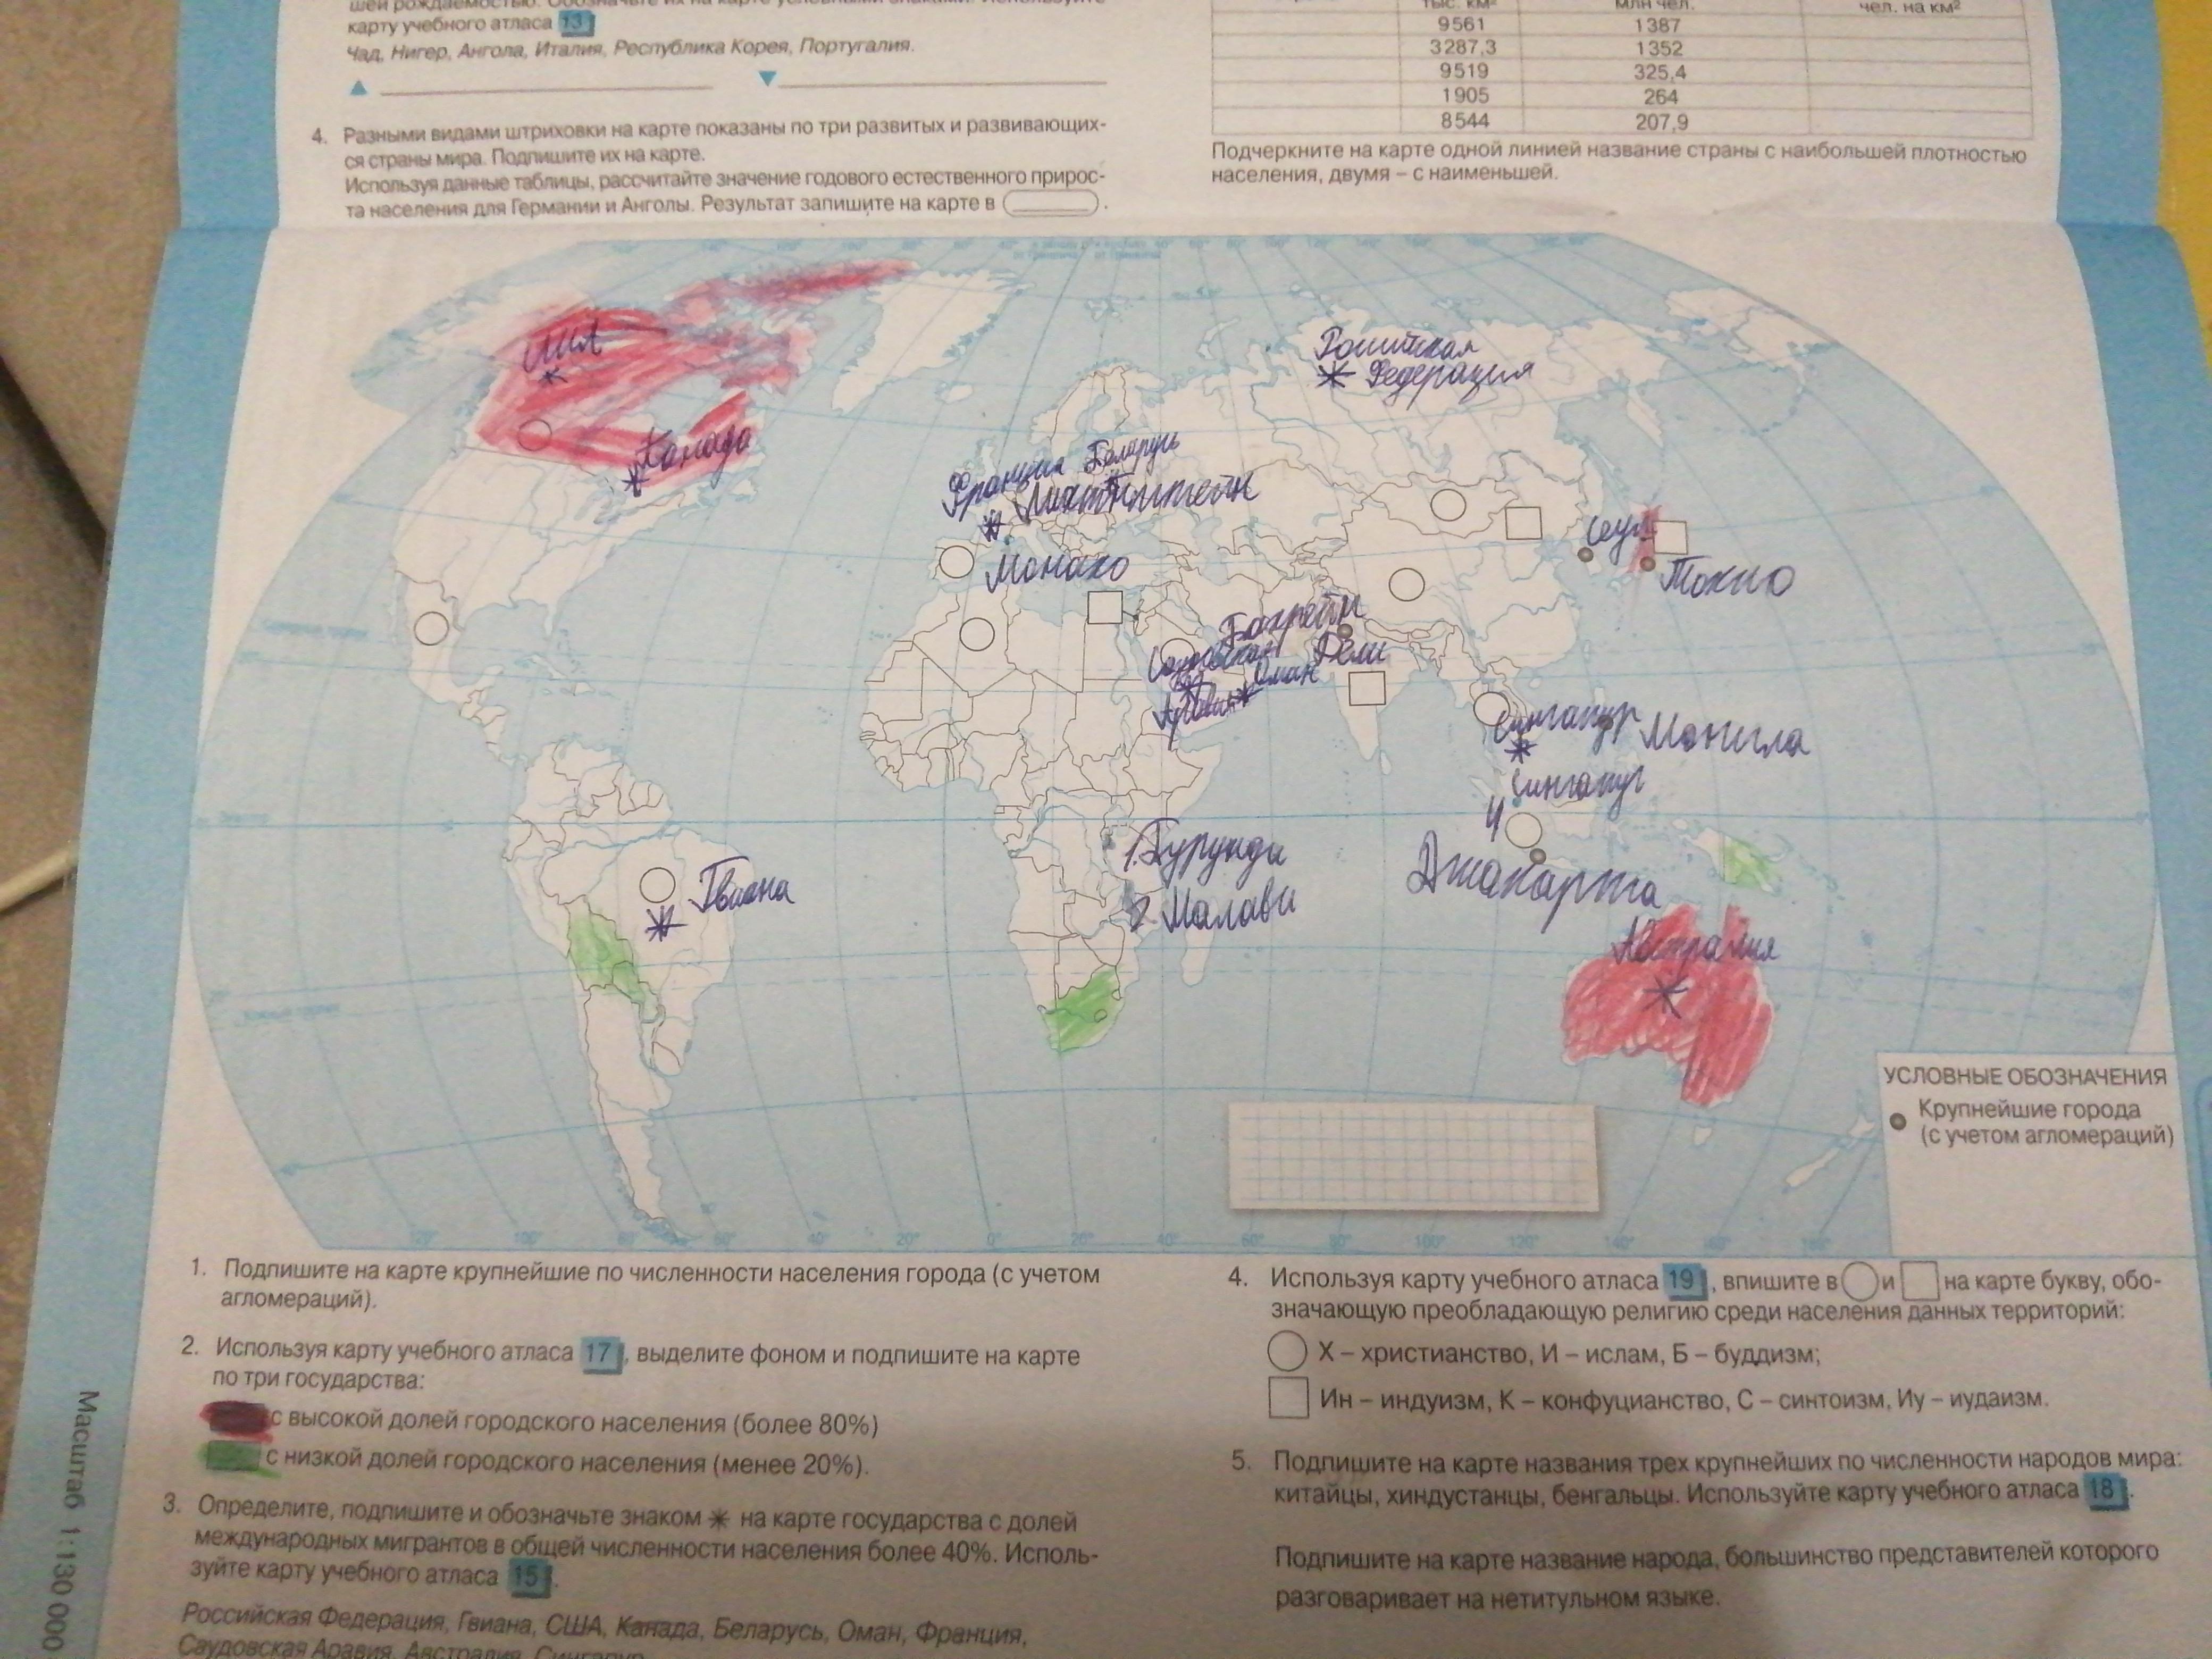 шей рождаемостью. Обозначьте их на карте условными знаками. Используйте
карту учебного атласа 13
Чад, Нигер, Ангола, Италия, Республика Корея, Португалия.
4. Разными видами штриховки на карте показаны по три развитых и развивающих-
ся страны мира. Подпишите их на карте.
Используя данные таблицы, рассчитайте значение годового естественного прирос-
та населения для Германии и Анголы. Результат запишите на карте в .
тыс. км² млн чел. чел. на км²
9561 1387
3287,3 1352
9519 325,4
1905 264
8544 207,9
Подчеркните на карте одной линией название страны с наибольшей плотностью
населения, двумя – с наименьшей.
США
Российская
Федерация
Канада
Франция Беларусь
Лихтенштейн
Монако
Сеул
Токио
Бахрейн
Дели
Саудовская
Аравия
Оман
Сингапур
Манила
Сингапур
Джакарта
Бурунди
Малави
Гвиана
Австралия
УСЛОВНЫЕ ОБОЗНАЧЕНИЯ
Крупнейшие города
(с учетом агломераций)
120° 100° 80° 60° 40° 20° 0° 20° 40° 60° 80° 100° 120° 140° 160° 180°
1. Подпишите на карте крупнейшие по численности населения города (с учетом
агломераций).
2. Используя карту учебного атласа 17, выделите фоном и подпишите на карте
по три государства:
с высокой долей городского населения (более 80%)
с низкой долей городского населения (менее 20%).
3. Определите, подпишите и обозначьте знаком * на карте государства с долей
международных мигрантов в общей численности населения более 40%. Исполь-
зуйте карту учебного атласа 15.
Российская Федерация, Гвиана, США, Канада, Беларусь, Оман, Франция,
Саудовская Аравия, Австралия, Сингапур
4. Используя карту учебного атласа 19, впишите в и на карте букву, обо-
значающую преобладающую религию среди населения данных территорий:
Х – христианство, И – ислам, Б – буддизм;
Ин – индуизм, К – конфуцианство, С – синтоизм, Иу – иудаизм.
5. Подпишите на карте названия трех крупнейших по численности народов мира:
китайцы, хиндустанцы, бенгальцы. Используйте карту учебного атласа 18.
Подпишите на карте название народа, большинство представителей которого
разговаривает на нетитульном языке.
Масштаб 1:130 000